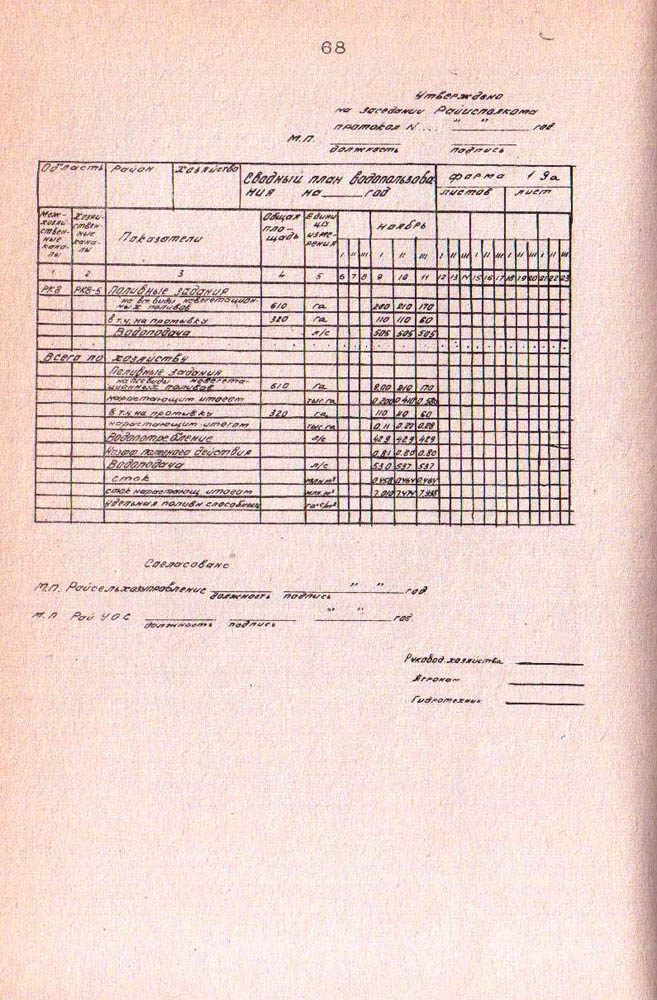 68
Утверждено
на заседании Райисполкома
протокол N .... " " год
М.П. должность подпись
Область Район Хозяйство Сводный план водопользова форма 19а
ния на год листов лист
Меж-хозяй ственные кана-лы Хозяй-ствен-ные кана-лы Показатели Общая пло-щадь Едини ца изме-рения I II III ноябрь I II III I II III I II III I II III I II III
1 2 3 4 5 6 7 8 9 10 11 12 13 14 15 16 17 18 19 20 21 22 23
РК8 РК8-5 Поливные задания
на вс. виды невегетацион-
ных поливов 610 га 200 210 170
в т.ч. на промывку 320 га 110 110 60
Водоподача л/с 505 505 505
Всего по хозяйству
Поливные задания
на все виды невегета-
ционных поливов 610 га 200 210 170
нарастающим итогом тыс.га 0.200 0.410 0.580
в т.ч. на промывку 320 га 110 110 60
нарастающим итогом тыс.га 0.11 0.22 0.28
Водопотребление л/с 429 429 429
Коэфф. полезного действия 0.81 0.80 0.80
Водоподача л/с 530 537 537
сток млн.м³ 0.458 0.464 0.464
сток нарастающ. итогом млн.м³ 7.010 7.474 7.938
удельная поливн. способность
Согласовано
М.П. Райсельхозуправление должность подпись " " год
М.П Рай УОС должность подпись " " год
Руковод. хозяйства
Агроном
Гидротехник